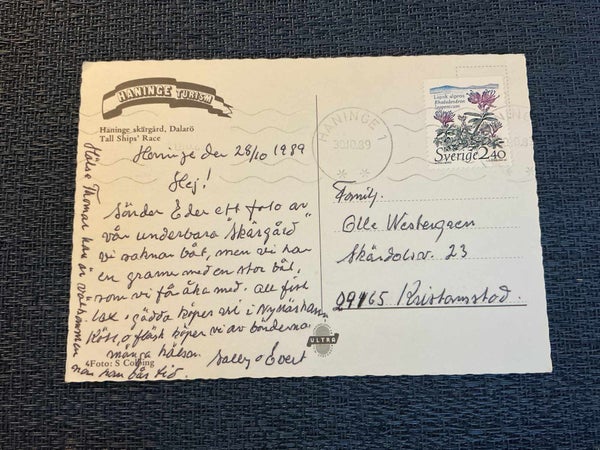 HANINGE TURISM
Haninge skärgård, Dalarö
Tall Ships' Race
Haninge den 28/10 1989
Hej!
Sänder Eder ett foto av
vår underbara "Skärgård"
vi saknar båt, men vi har
en granne med en stor båt,
som vi få åka med. All fisk
lax, gädda köper vi i Nynäshamn
Kött, o fläsk köper vi av bönderna
många hälsn.
Sally o Evert
Hälsa Thomas han är välkommen
när han får tid.
Foto: S Colling
ULTRA
HANINGE 1
30.10.89
Lapsk alpros
Rhododendron
lapponicum
Sverige 2.40
Familj.
Olle Westergren
23
29165 Kristianstad.